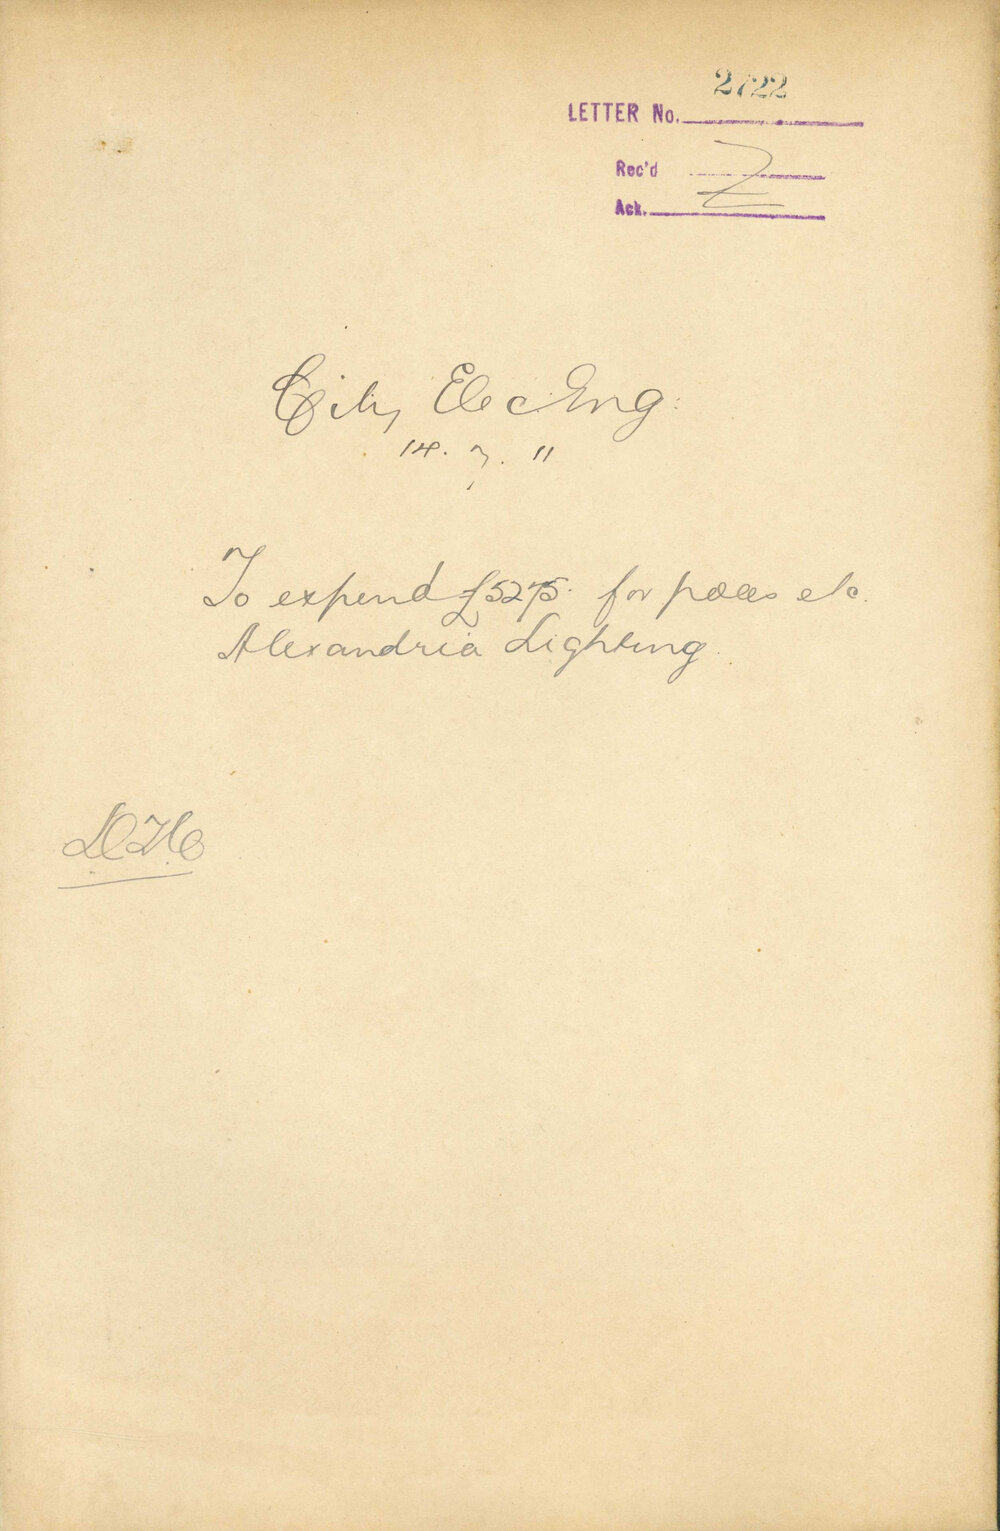 2722
LETTER No.
Rec'd
Ack.
City Elec Eng.
14. 7. 11
To expend £5275. for poles etc.
Alexandria Lighting.